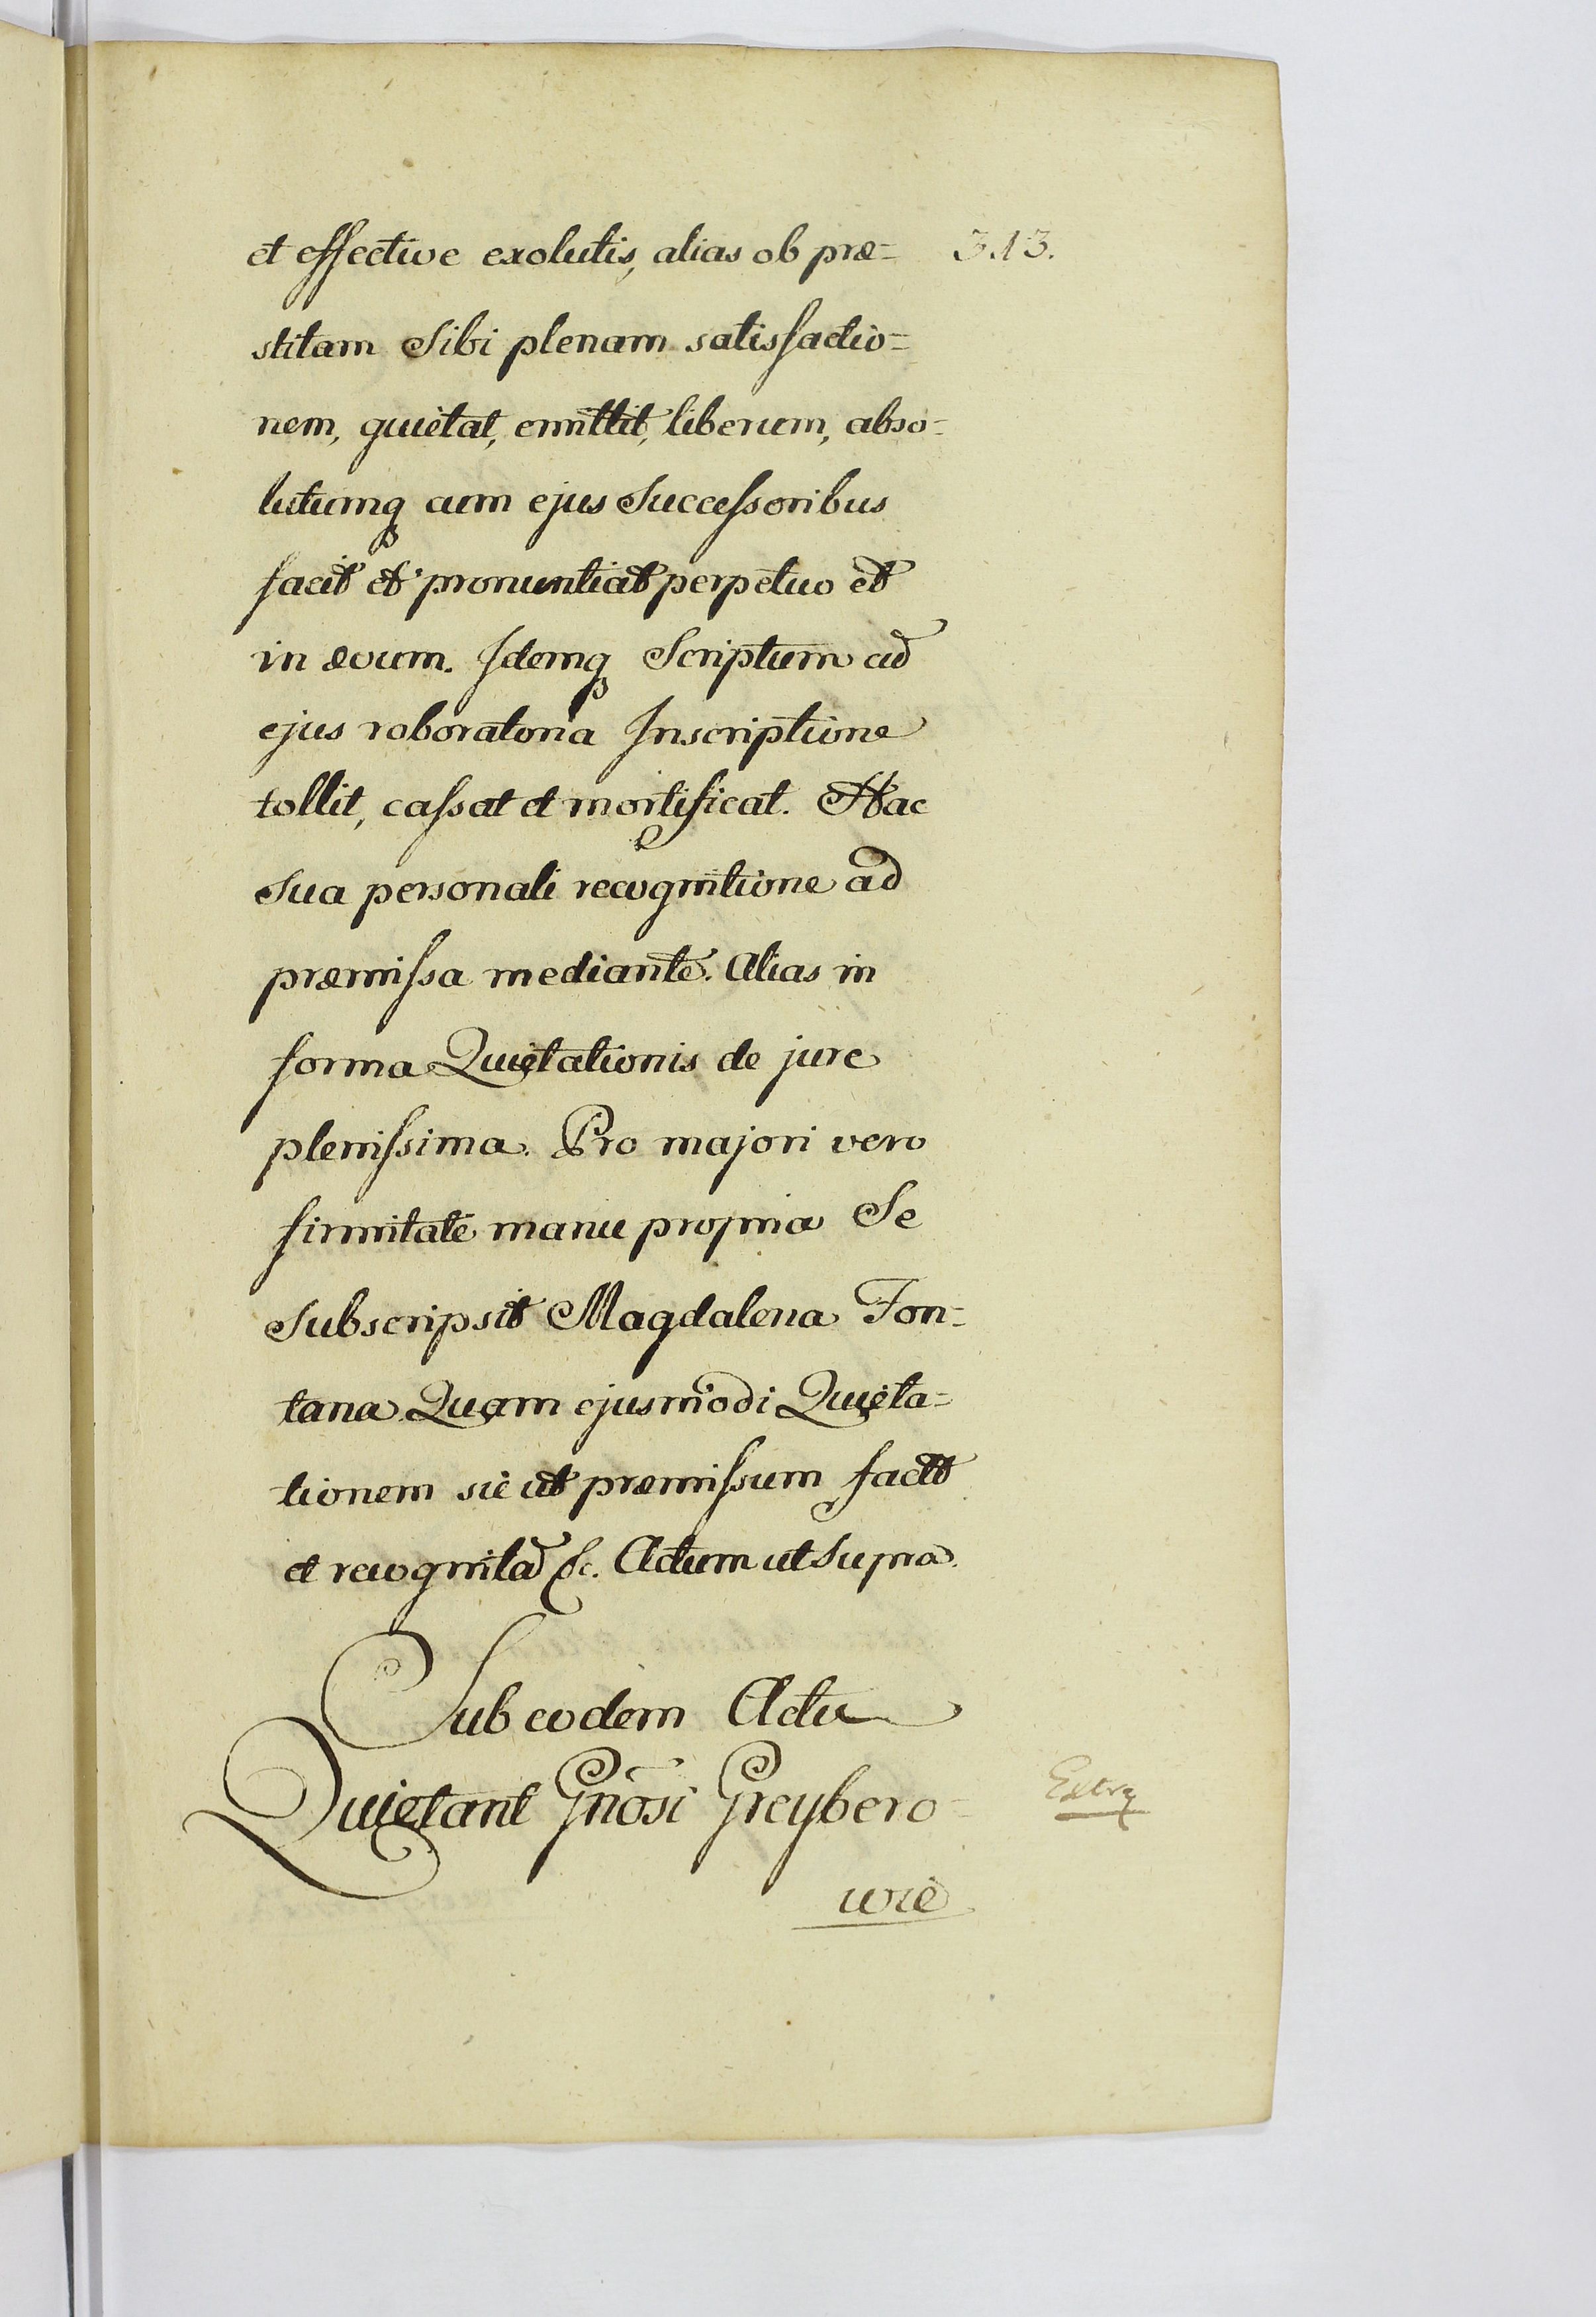 et effective exolutis, alias ob præ= 313.
stitam Sibi plenam satisfactio=
nem, quietat, emittit, liberum, abso=
lutumq cum ejus Successoribus
facit et pronuntiat perpetuo et
in ævum. Idemq Scriptum cũ
ejus roboratoria Inscriptione
tollit, cassat et mortificat. Hac
Sua personali recognitione ad
præmissa mediante. Alias in
forma Quietationis de jure
plenissima. Pro majori vero
firmitate manu propria Se
Subscripsit Magdalena Fon=
tana. Quam ejusmodi Quieta=
tionem sic ut præmissum facta
et recognita &c. Actum ut Supra.
Sub eodem Actu
Quietant Gñosi Greybero= Extra
wie